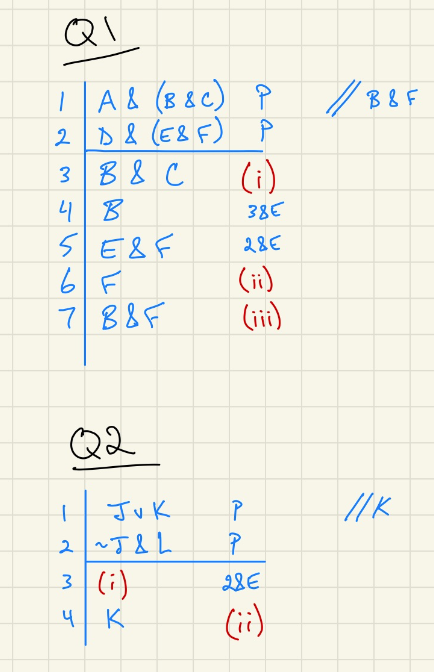 Q1
1 A & (B & C) P // B & F
2 D & (E & F) P
3 B & C (i)
4 B 3&E
5 E & F 2&E
6 F (ii)
7 B & F (iii)
Q2
1 J v K P // K
2 ~J & L P
3 (i) 2&E
4 K (ii)